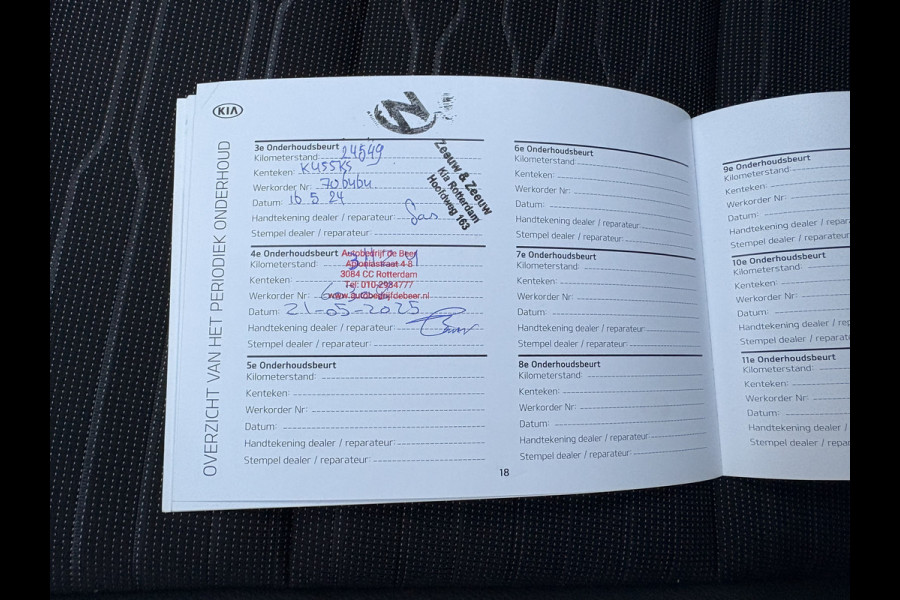 KIA
OVERZICHT VAN HET PERIODIEK ONDERHOUD
3e Onderhoudsbeurt
Kilometerstand: 24549
Kenteken:
Werkorder Nr:
Datum: 16 5 24
Handtekening dealer / reparateur:
Stempel dealer / reparateur:
Zeeuw & Zeeuw
Kia Rotterdam
Hoofdweg 163
4e Onderhoudsbeurt
Kilometerstand:
Kenteken:
Werkorder Nr:
Datum: 21-05-2025
Handtekening dealer / reparateur:
Stempel dealer / reparateur:
Autobedrijf de Beer
3084 CC Rotterdam
Tel: 010-2934777
www.autobedrijfdebeer.nl
5e Onderhoudsbeurt
Kilometerstand:
Kenteken:
Werkorder Nr:
Datum:
Handtekening dealer / reparateur:
Stempel dealer / reparateur:
6e Onderhoudsbeurt
Kilometerstand:
Kenteken:
Werkorder Nr:
Datum:
Handtekening dealer / reparateur:
Stempel dealer / reparateur:
7e Onderhoudsbeurt
Kilometerstand:
Kenteken:
Werkorder Nr:
Datum:
Handtekening dealer / reparateur:
Stempel dealer / reparateur:
8e Onderhoudsbeurt
Kilometerstand:
Kenteken:
Werkorder Nr:
Datum:
Handtekening dealer / reparateur:
Stempel dealer / reparateur:
18
9e Onderhoudsbeurt
Kilometerstand:
Kenteken:
Werkorder Nr:
Datum:
Handtekening dealer / repara
Stempel dealer / reparat
10e Onderhoudsbeurt
Kilometerstand:
Kenteken:
Werkorder Nr:
Datum:
Handtekening dealer / rep
Stempel dealer / reparat
11e Onderhoudsbeurt
Kilometerstand:
Kenteken:
Werkorder Nr:
Datum:
Handtekening dealer /
Stempel dealer / repa